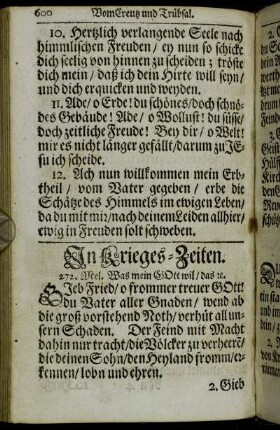 600 Vom Creutz und Trübsal.
10. Hertzlich verlangende Seele nach
himmlischen Freuden/ ey nun so schicke
dich seelig von hinnen zu scheiden; tröste
dich mein/ daß ich dein Hirte will seyn/
und dich erquicken und weyden.
11. Ade/ o Erde! du schönes/ doch schnö-
des Gebäude! Ade/ o Wollust! du süsse/
doch zeitliche Freude! Bey dir/ o Welt!
mir es nicht länger gefällt/ darum zu JE-
su ich scheide.
12. Ach nun willkommen mein Erb-
theil/ vom Vater gegeben/ erbe die
Schätze des Himmels im ewigen Leben/
da du mit mir/ nach deinem Leiden allhier/
ewig in Freuden solt schweben.
In Krieges-Zeiten.
272. Mel. Was mein GOtt wil/ das ꝛc.
Gieb Fried/ o frommer treuer GOtt!
du Vater aller Gnaden/ wend ab
die groß vorstehend Noth/ verhüt all un-
sern Schaden. Der Feind mit Macht
dahin nur tracht/ die Völcker zu verheern/
die deinen Sohn/ den Heyland fromm/ er-
kennen/ lobn und ehren.
2. Gieb